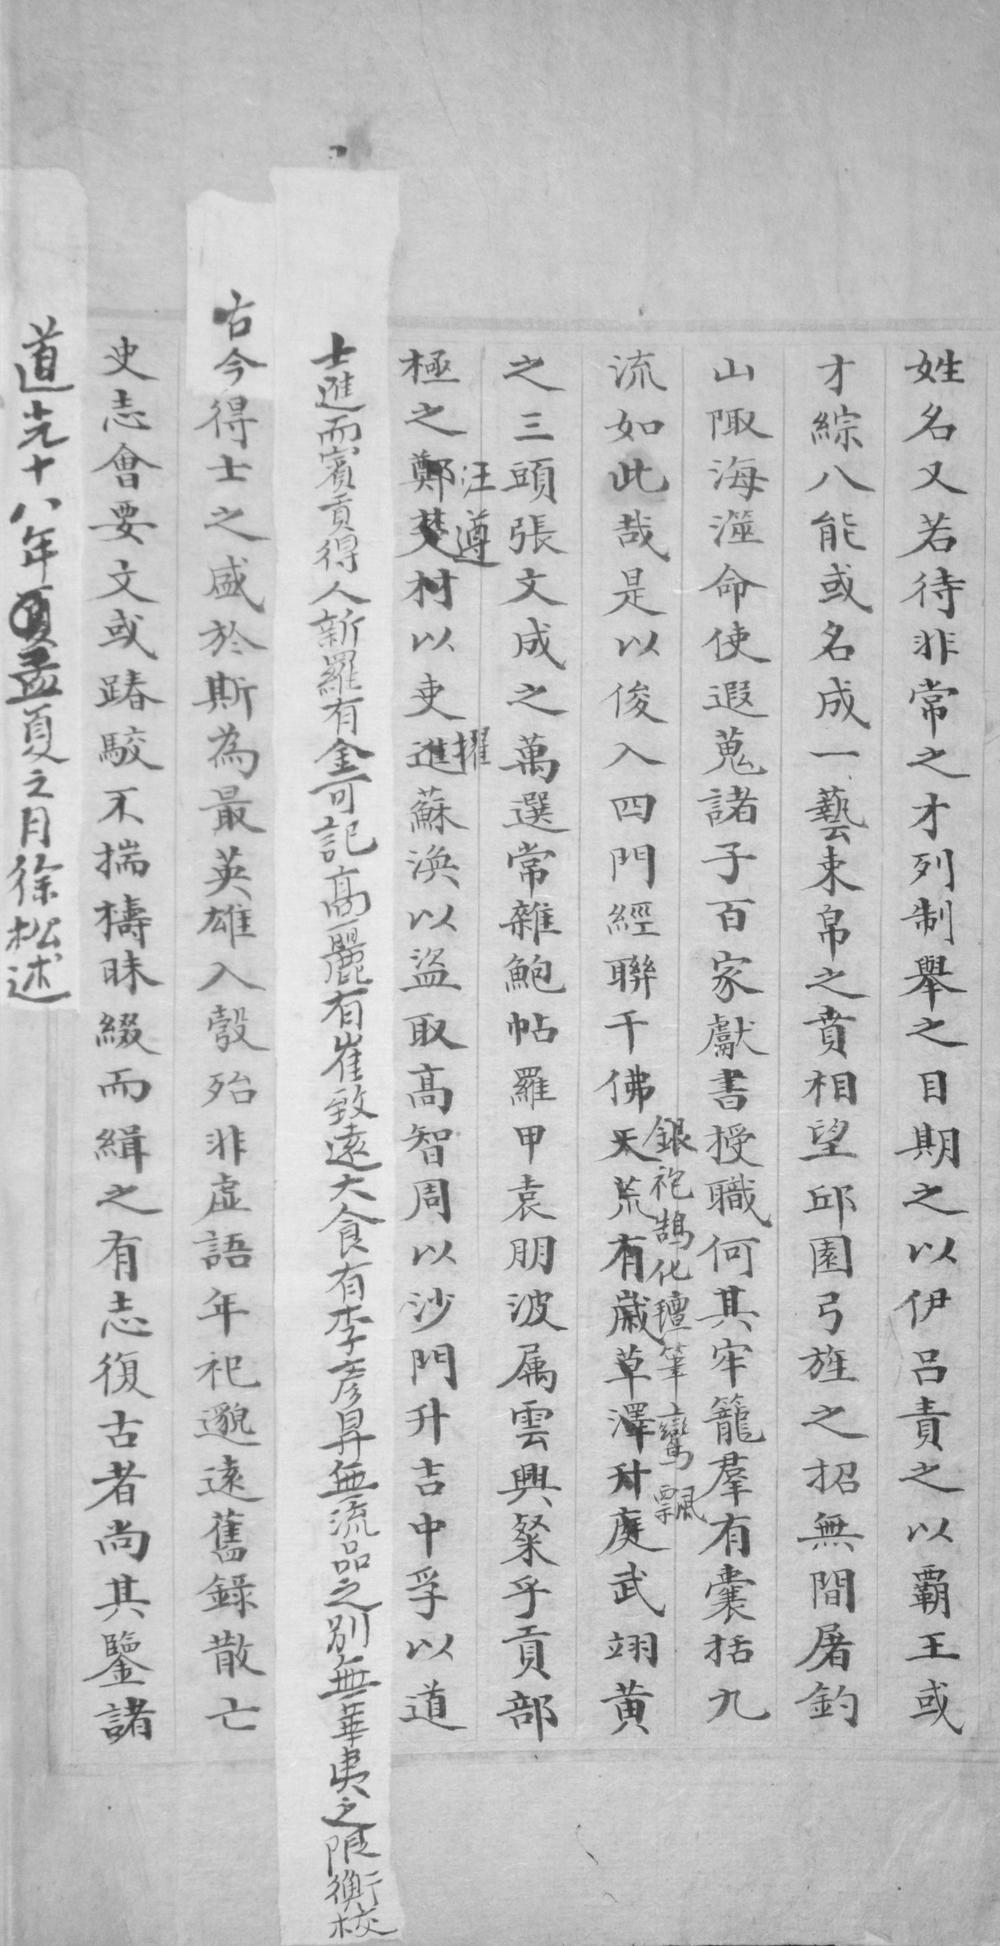 姓名又若待非常之才列制舉之目期之以伊呂責之以霸王或
才綜八能或名成一藝束帛之賁相望邱園弓旌之招無間屠釣
山陬海澨命使遐蒐諸子百家獻書授職何其牢籠羣有囊括九
流如此哉是以俊入四門經聯千佛天荒有嵗草澤升庭武翊黄
銀袍鵠化壇筆鸞飄
之三頭張文成之萬選常雜鮑帖羅甲袁朋波属雲興粲乎貢部
汪遵
擢
極之鄭
村以吏進蘇渙以盜取高智周以沙門升吉中孚以道
士進而賓貢得人新羅有金可記高麗有崔致遠大食有李彦昇無流品之别無華夷之限衡校
古今得士之盛於斯為最英雄入彀殆非虛語年祀邈遠舊錄散亡
史志會要文或踳駮不揣檮昧綴而緝之有志復古者尚其鑒諸
道光十八年孟夏之月徐松述